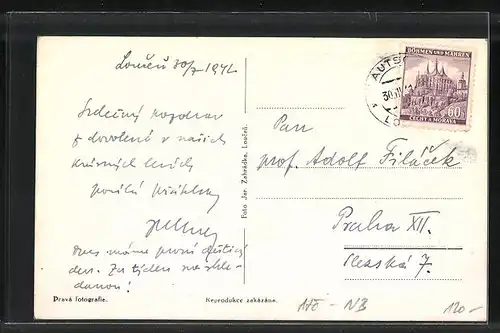 Loučeň 30/7 1942
Srdečný pozdrav
z dovolené v našich
krásných lesích
posílá
dnes máme první deštivý
den. Za týden na shle-
danou!
Pravá fotografie.
Foto Jar. Zahrádka, Loučeň.
Reprodukce zakázána.
BÖHMEN UND MÄHREN
60
ČECHY A MORAVA
AUTS
30.VII
LO
Pan
prof. Adolf Filáček
Praha XII.
Slezská 7.
175 - NB
120-